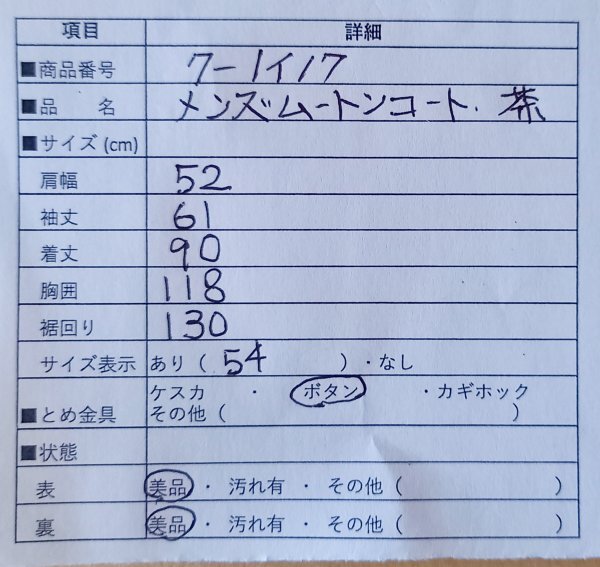 項目 詳細
■商品番号 7-1イ17
■品 名 メンズムートンコート. 茶
■サイズ(cm)
肩幅 52
袖丈 61
着丈 90
胸囲 118
裾回り 130
サイズ表示 あり（ 54 ）・なし
ケスカ ・ ボタン ・カギホック
■とめ金具 その他（ ）
■状態
表 美品 ・ 汚れ有 ・ その他（ ）
裏 美品 ・ 汚れ有 ・ その他（ ）